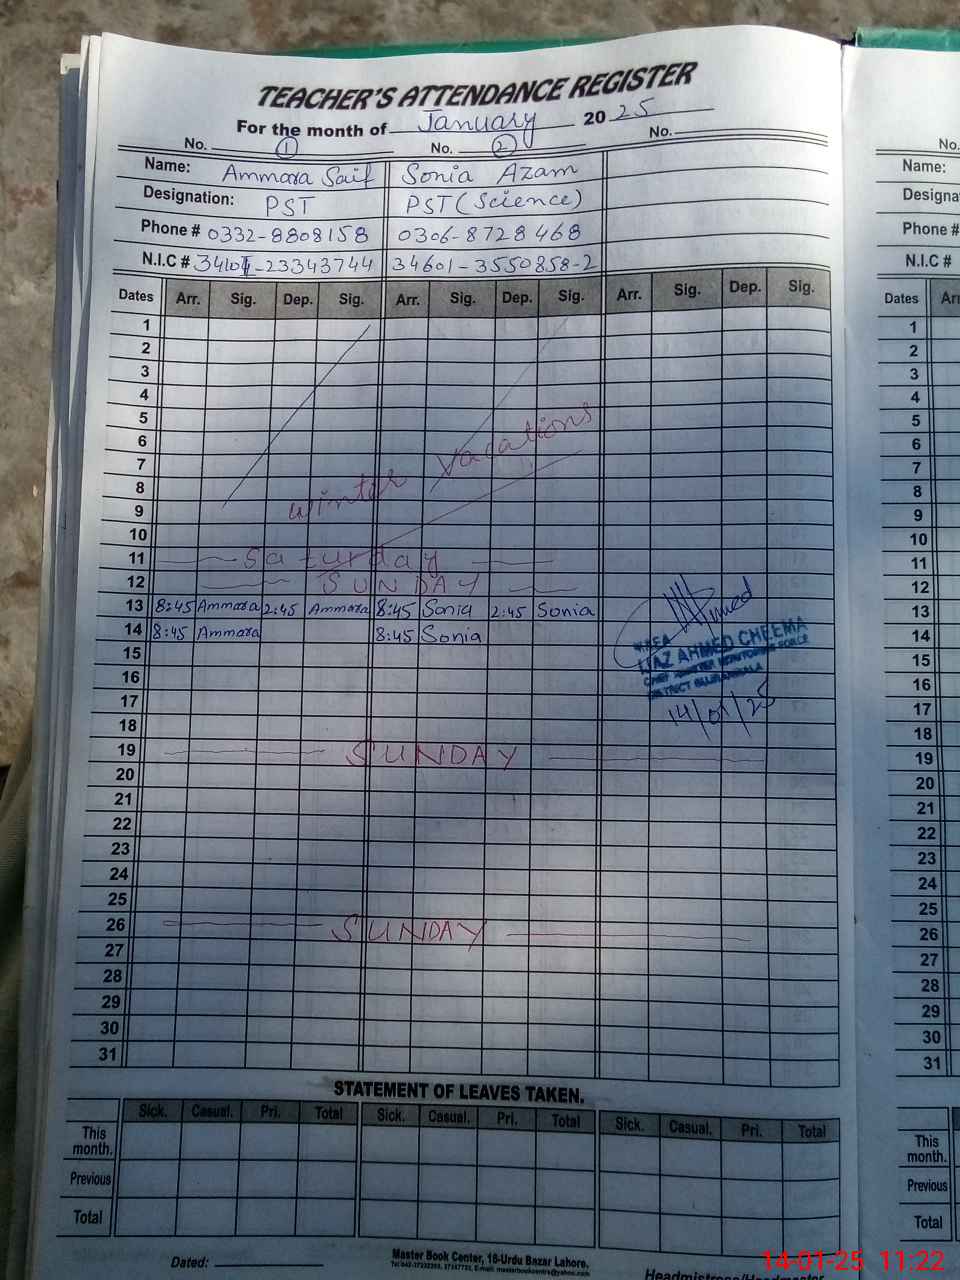 TEACHER'S ATTENDANCE REGISTER
For the month of January 2025
No. 1 No. 2 No.
Name: Ammara Saif Sonia Azam
Designation: PST PST (Science)
Phone # 0332-8808158 0306-8728468
N.I.C # 34601-3550858-2
Dates Arr. Sig. Dep. Sig. Arr. Sig. Dep. Sig. Arr. Sig. Dep. Sig.
1
2
3
4
5
6
7
8
winter vacations
9
10
11 Saturday
12 SUNDAY
13 8:45 Ammara 2:45 Ammara 8:45 Sonia 2:45 Sonia
14 8:45 Ammara 8:45 Sonia
Ahmed
IJAZ AHMED CHEEMA
CHIEF MINISTER MONITORING FORCE
DISTRICT GUJRANWALA
14/01/25
15
16
17
18
19 SUNDAY
20
21
22
23
24
25
26 SUNDAY
27
28
29
30
31
STATEMENT OF LEAVES TAKEN.
Sick. Casual. Pri. Total Sick. Casual. Pri. Total Sick. Casual. Pri. Total
This month.
Previous
Total
Dated:
Master Book Center, 16-Urdu Bazar Lahore.
Headmistress/Headmaster
No.
Name:
Designa
Phone #
N.I.C #
Dates Arr
1
2
3
4
5
6
7
8
9
10
11
12
13
14
15
16
17
18
19
20
21
22
23
24
25
26
27
28
29
30
31
This month.
Previous
Total
14-01-25 11:22